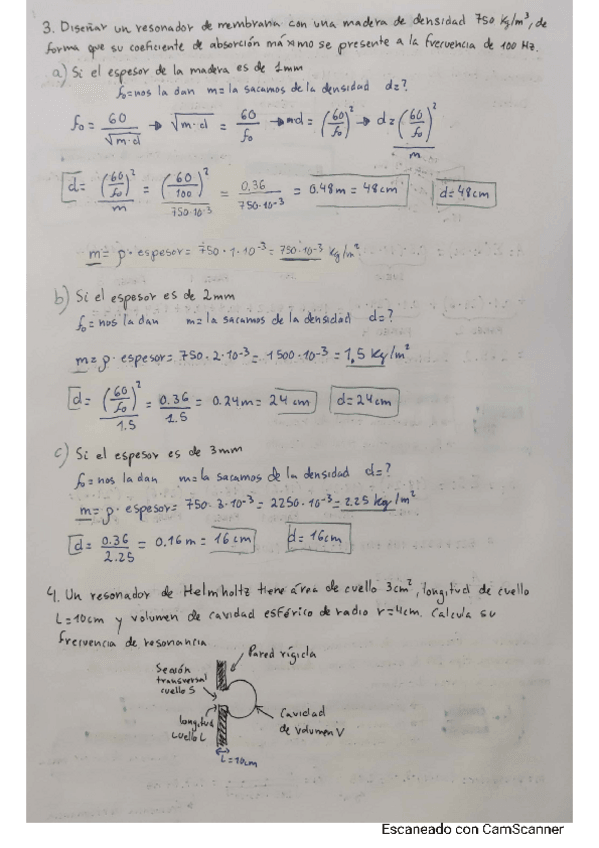 3. Diseñar un resonador de membrana con una madera de densidad 750 Kg/m³, de
forma que su coeficiente de absorción máximo se presente a la frecuencia de 100 Hz.
a) Si el espesor de la madera es de 1mm
f₀=nos la dan m=la sacamos de la densidad d=?
f₀ = 60/√(m·d) → √(m·d) = 60/f₀ → md = (60/f₀)² → d = (60/f₀)²/m
d = (60/f₀)²/m = (60/100)²/750·10⁻³ = 0.36/750·10⁻³ = 0.48m = 48cm d=48cm
m = ρ · espesor = 750 · 1 · 10⁻³ = 750·10⁻³ Kg/m²
b) Si el espesor es de 2mm
f₀ = nos la dan m=la sacamos de la densidad d=?
m = ρ · espesor = 750 · 2·10⁻³ = 1500·10⁻³ = 1,5 Kg/m²
d = (60/f₀)²/1.5 = 0.36/1.5 = 0.24m = 24cm d=24cm
c) Si el espesor es de 3mm
f₀ = nos la dan m=la sacamos de la densidad d=?
m = ρ · espesor = 750·3·10⁻³ = 2250·10⁻³ = 2.25 Kg/m²
d = 0.36/2.25 = 0.16m = 16cm d=16cm
4. Un resonador de Helmholtz tiene área de cuello 3cm², longitud de cuello
L=10cm y volumen de cavidad esférico de radio r=4cm. Calcula su
frecuencia de resonancia
Pared rígida
Sección
transversal
cuello S
longitud
cuello L
Cavidad
de volumen V
L=10cm
Escaneado con CamScanner